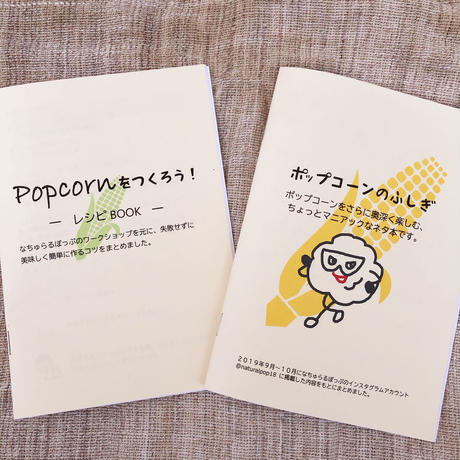 Popcornをつくろう！
― レシピBOOK ―
なちゅらるぽっぷのワークショップを元に、失敗せずに
美味しく簡単に作るコツをまとめました。
ポップコーンのふしぎ
ポップコーンをさらに奥深く楽しむ、
ちょっとマニアックなネタ本です。
2019年9月〜10月になちゅらるぽっぷのインスタグラムアカウント
@naturalpop18 に掲載した内容をもとにまとめました。